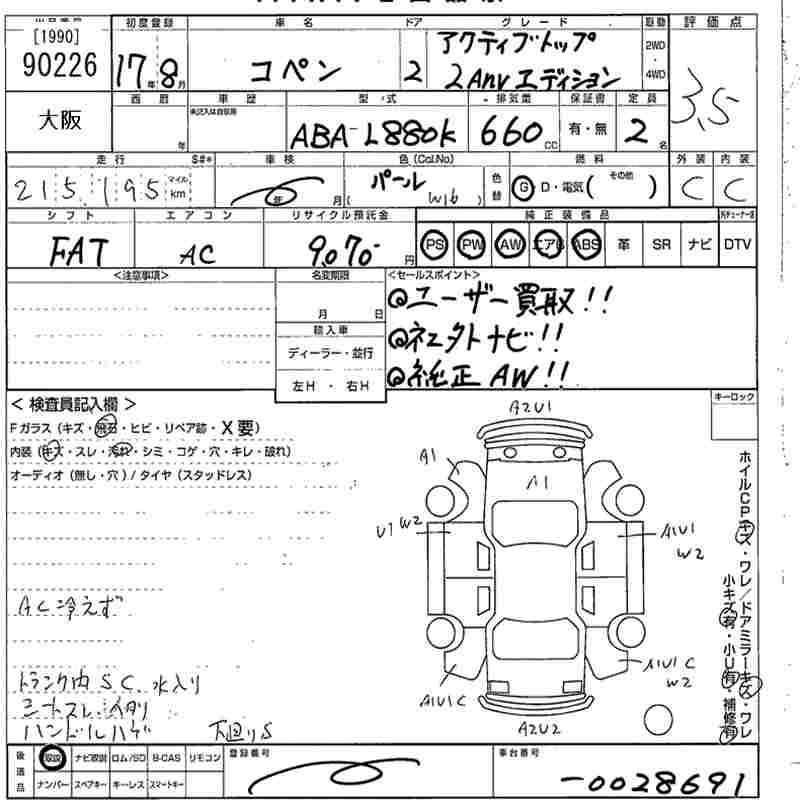 [1990]
90226
大阪
初度登録 車名 ドア グレード 駆動 評価点
17年8月 コペン 2 アクティブトップ
2Anv エディション
2WD
4WD
3.5
西暦 車歴 型式 排気量 保証書 定員
年 未記入は自家用 ABA-L880K 660cc 有・無 2名
走行 S#* 車検 色(Col.No) 燃料 外装 内装
215,195 マイル km 年 月 パール W16 色替 G D・電気( その他 ) C C
シフト エアコン リサイクル預託金 純正装備品
FAT AC 9,070円 PS PW AW エアB ABS 革 SR ナビ DTV
<注意事項> 名変期限 <セールスポイント>
月 日
輸入車
ディーラー・並行
左H・右H
◎ユーザー買取!!
◎ネエタトナビ!!
◎純正AW!!
<検査員記入欄> キーロック
Fガラス(キズ・飛石・ヒビ・リペア跡・X要)
内装(キズ・スレ・汚れ・シミ・コゲ・穴・キレ・破れ)
オーディオ(無し・穴)/タイヤ(スタッドレス)
AC冷えず
トランク内SC.水入り
シートスレ.イタミ
ハンドルハゲ 下廻りS
A2U1
A1
A1
U1 W2
A1U1
W2
A1U1C
A1U1C
W2
A2U2
ホイルCPキズ・ワレ/ドアミラーキズ・ワレ
小キズ有・小U有・補修有
後送品 取説 ナビ取説 ロム/SD B-CAS リモコン 登録番号 車台番号
ナンバー スペアキー キーレス スマートキー
-0028691